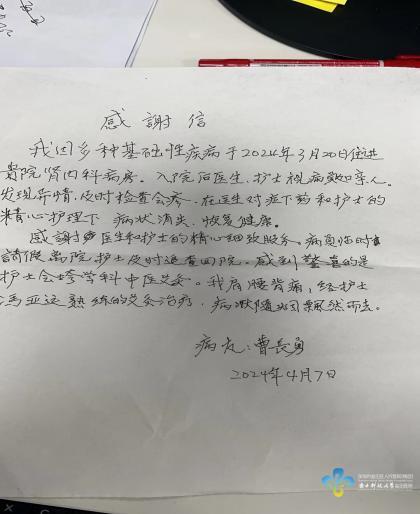 感謝信
我因多种基础性疾病于2024年3月20日住进
贵院肾内科病房。入院后医生、护士视病员如亲人。
发现异情，及时检查会疹，在医生对症下药和护士的
精心护理下 病状消失，恢复健康。
感謝 医生和护士的精心细致服务。病员临时
請假离院，护士及时追查回院。感到驚喜的是
护士会跨学科中医艾灸。我肩腰背痛，经护士
冯亚运熟练的艾灸治疗，病状随烟飘然而去。
病友：曹長勇
2024年4月7日